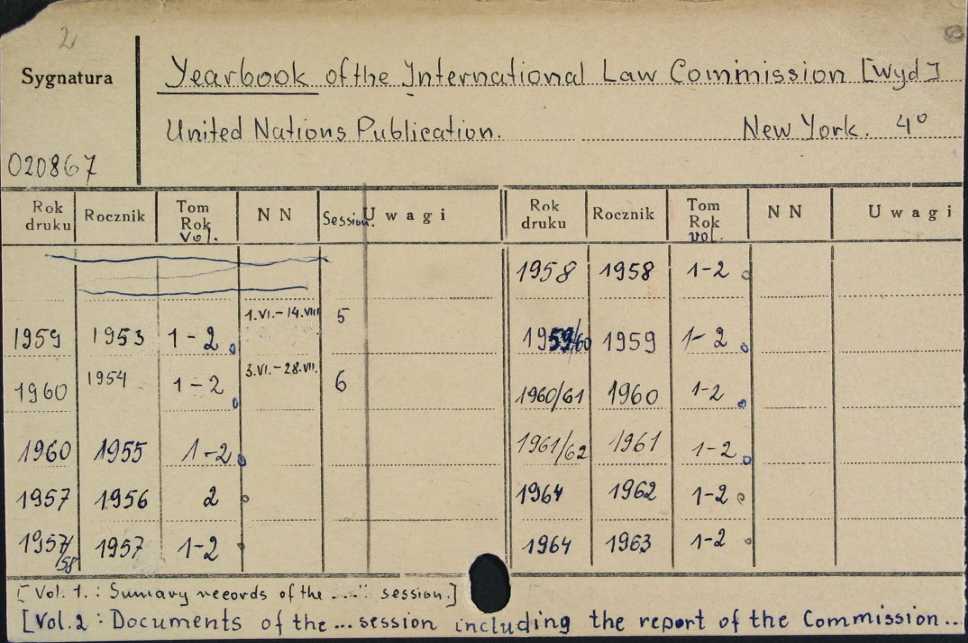 2
Sygnatura
Yearbook of the International Law Commission [Wyd]
United Nations Publication. New York. 4°
020867
Rok druku Rocznik Tom Rok Vol. N N Session. Uwagi Rok druku Rocznik Tom Rok vol. N N Uwagi
1958 1958 1-2
1959 1953 1-2 1.VI.-14.VIII 5 1959/60 1959 1-2
1960 1954 1-2 3.VI.-28.VII. 6 1960/61 1960 1-2
1960 1955 1-2 1961/62 1961 1-2
1957 1956 2 1964 1962 1-2
1957/58 1957 1-2 1964 1963 1-2
[Vol. 1.: Sumary records of the ..... session.]
[Vol. 2: Documents of the ... session including the report of the Commission..